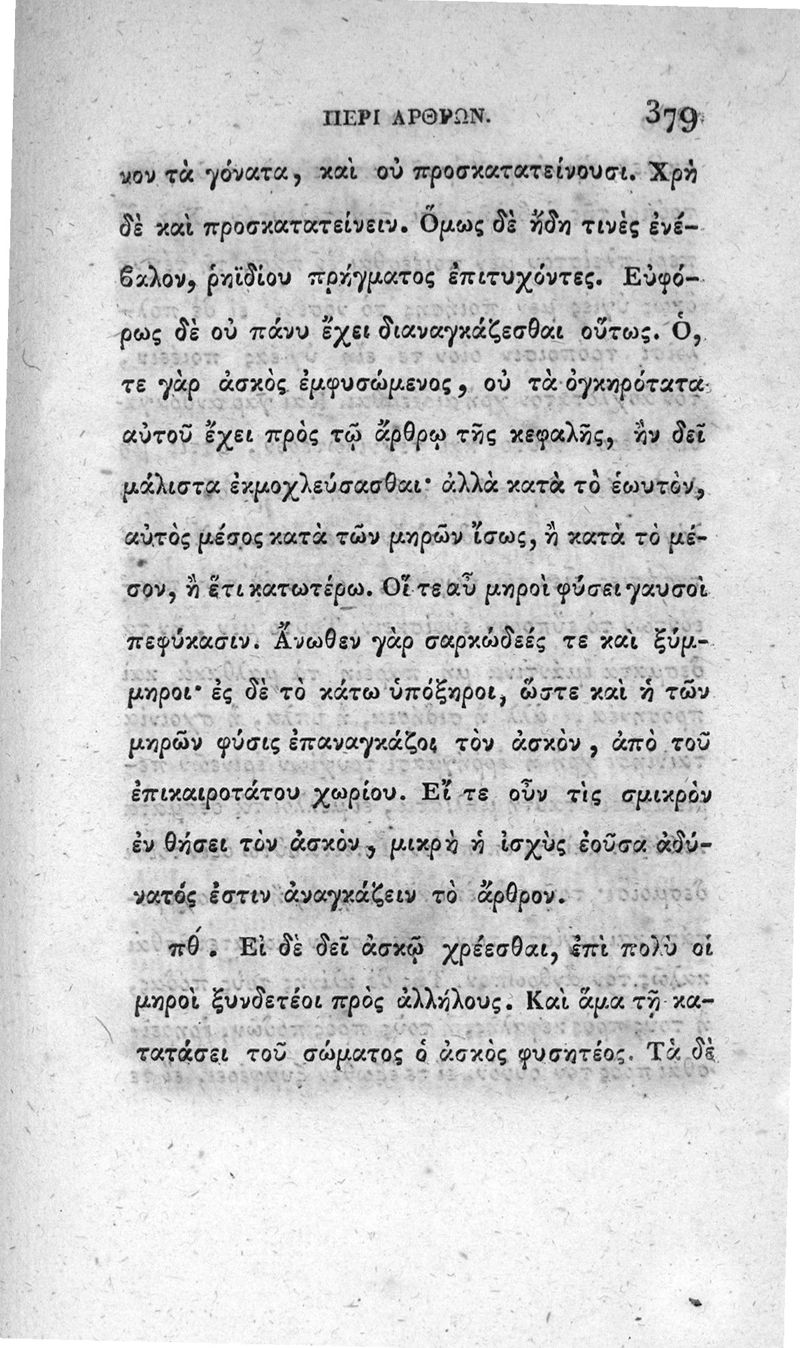 ΠΕΡΙ ΑΡΘΡΩΝ. 379
νον τὰ γόνατα, καὶ οὐ προσκατατείνουσι. Χρὴ
δὲ καὶ προσκατατείνειν. Ὅμως δὲ ἤδη τινὲς ἐνέ-
ϐαλον, ῥηϊδίου πρήγματος ἐπιτυχόντες. Εὐφό-
ρως δὲ οὐ πάνυ ἔχει διαναγκάζεσθαι οὕτως. Ὁ,
τε γὰρ ἀσκὸς ἐμφυσώμενος, οὐ τὰ ὀγκηρότατα
αὐτοῦ ἔχει πρὸς τῷ ἄρθρῳ τῆς κεφαλῆς, ἣν δεῖ
μάλιστα ἐκμοχλεύσασθαι· ἀλλὰ κατὰ τὸ ἑωυτὸν,
αὐτὸς μέσος κατὰ τῶν μηρῶν ἴσως, ἢ κατὰ τὸ μέ-
σον, ἢ ἔτι κατωτέρω. Οἵ τε αὖ μηροὶ φύσει γαυσοὶ
πεφύκασιν. Ἄνωθεν γὰρ σαρκώδεές τε καὶ ξύμ-
μηροι· ἐς δὲ τὸ κάτω ὑπόξηροι, ὥστε καὶ ἡ τῶν
μηρῶν φύσις ἐπαναγκάζοι τὸν ἀσκὸν, ἀπὸ τοῦ
ἐπικαιροτάτου χωρίου. Εἴ τε οὖν τὶς σμικρὸν
ἐν θήσει τὸν ἀσκὸν, μικρὴ ἡ ἰσχὺς ἐοῦσα ἀδύ-
νατός ἐστιν ἀναγκάζειν τὸ ἄρθρον.
πθ´. Εἰ δὲ δεῖ ἀσκῷ χρέεσθαι, ἐπὶ πολὺ οἱ
μηροὶ ξυνδετέοι πρὸς ἀλλήλους. Καὶ ἅμα τῇ κα-
τατάσει τοῦ σώματος ὁ ἀσκὸς φυσητέος. Τὰ δὲ